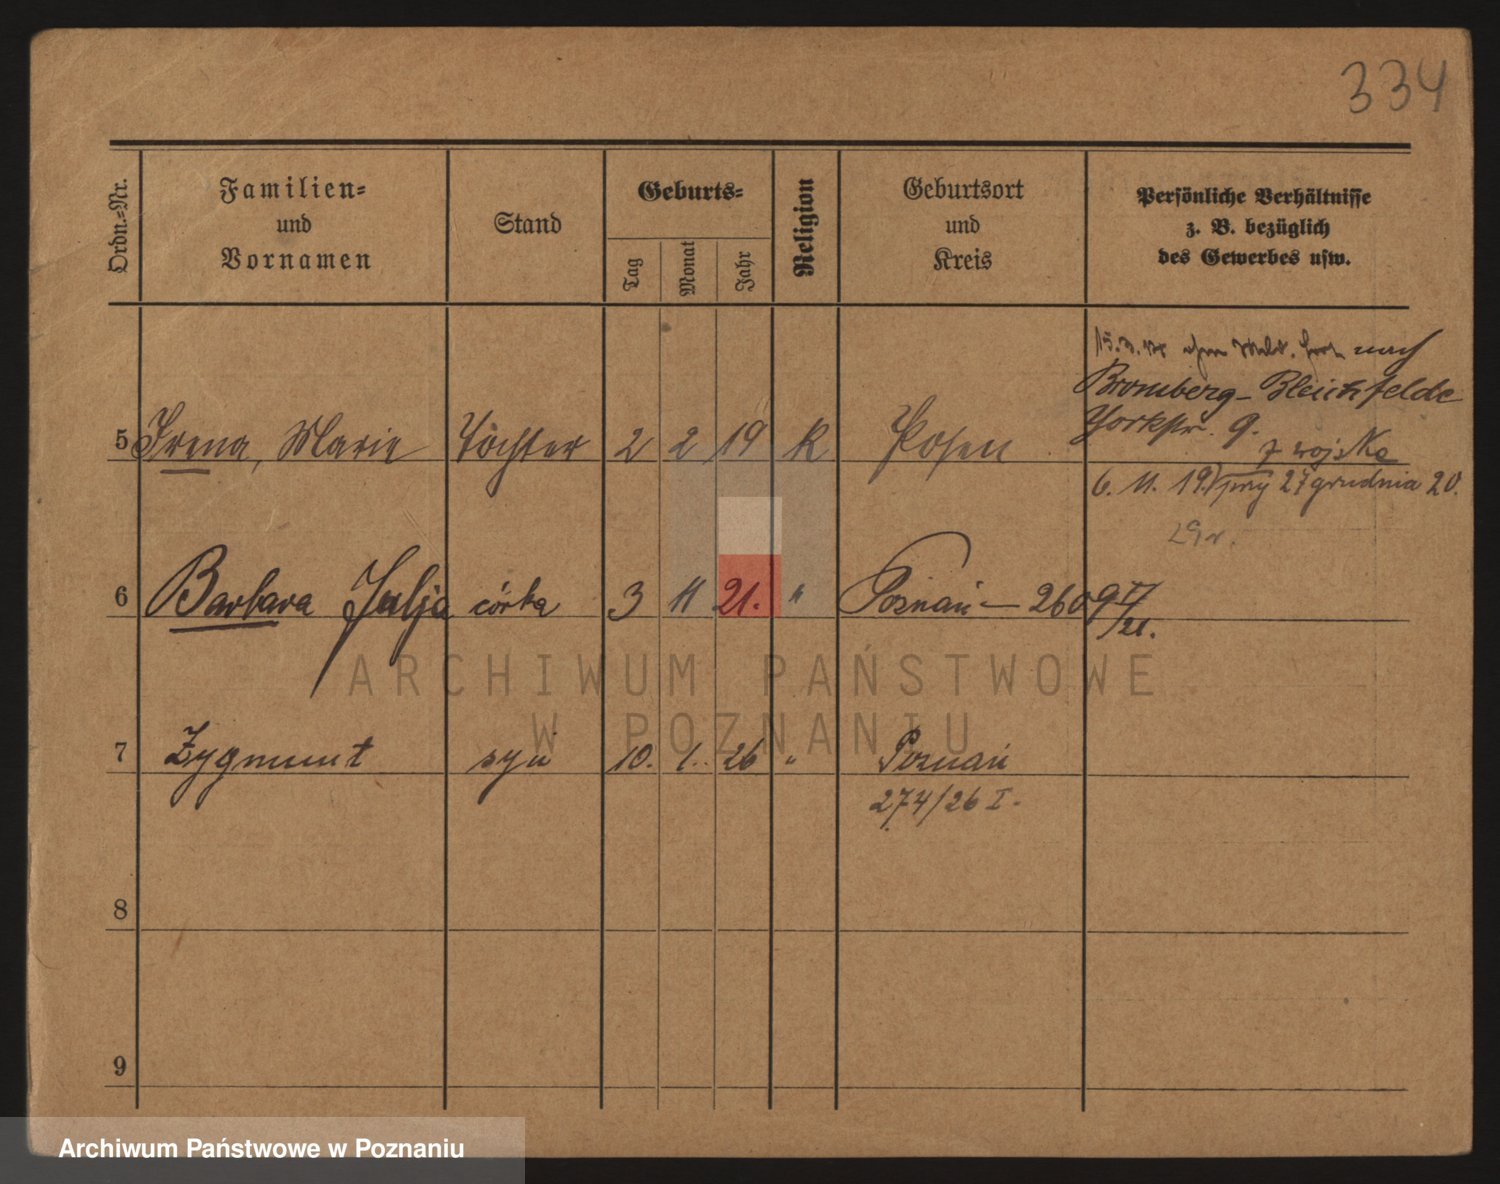 334
Ordn.=Nr.
Familien=
und
Vornamen
Stand
Geburts=
Tag
Monat
Jahr
Religion
Geburtsort
und
Kreis
Persönliche Verhältnisse
z. B. bezüglich
des Gewerbes usw.
nach
Bromberg - Bleichfelde
Yorkstr. 9.
z wojska
5 Irena, Marie Tochter 2 2 19 K Posen
6. 11. 19. 27 grudnia 20.
29r.
6 Barbara Julja córka 3 11 21. " Poznań — 2609 IV
/21.
7 Zygmunt syn 10. 1. 26 " Poznań
274/26 I.
8
9
ARCHIWUM PAŃSTWOWE
W POZNANIU
Archiwum Państwowe w Poznaniu